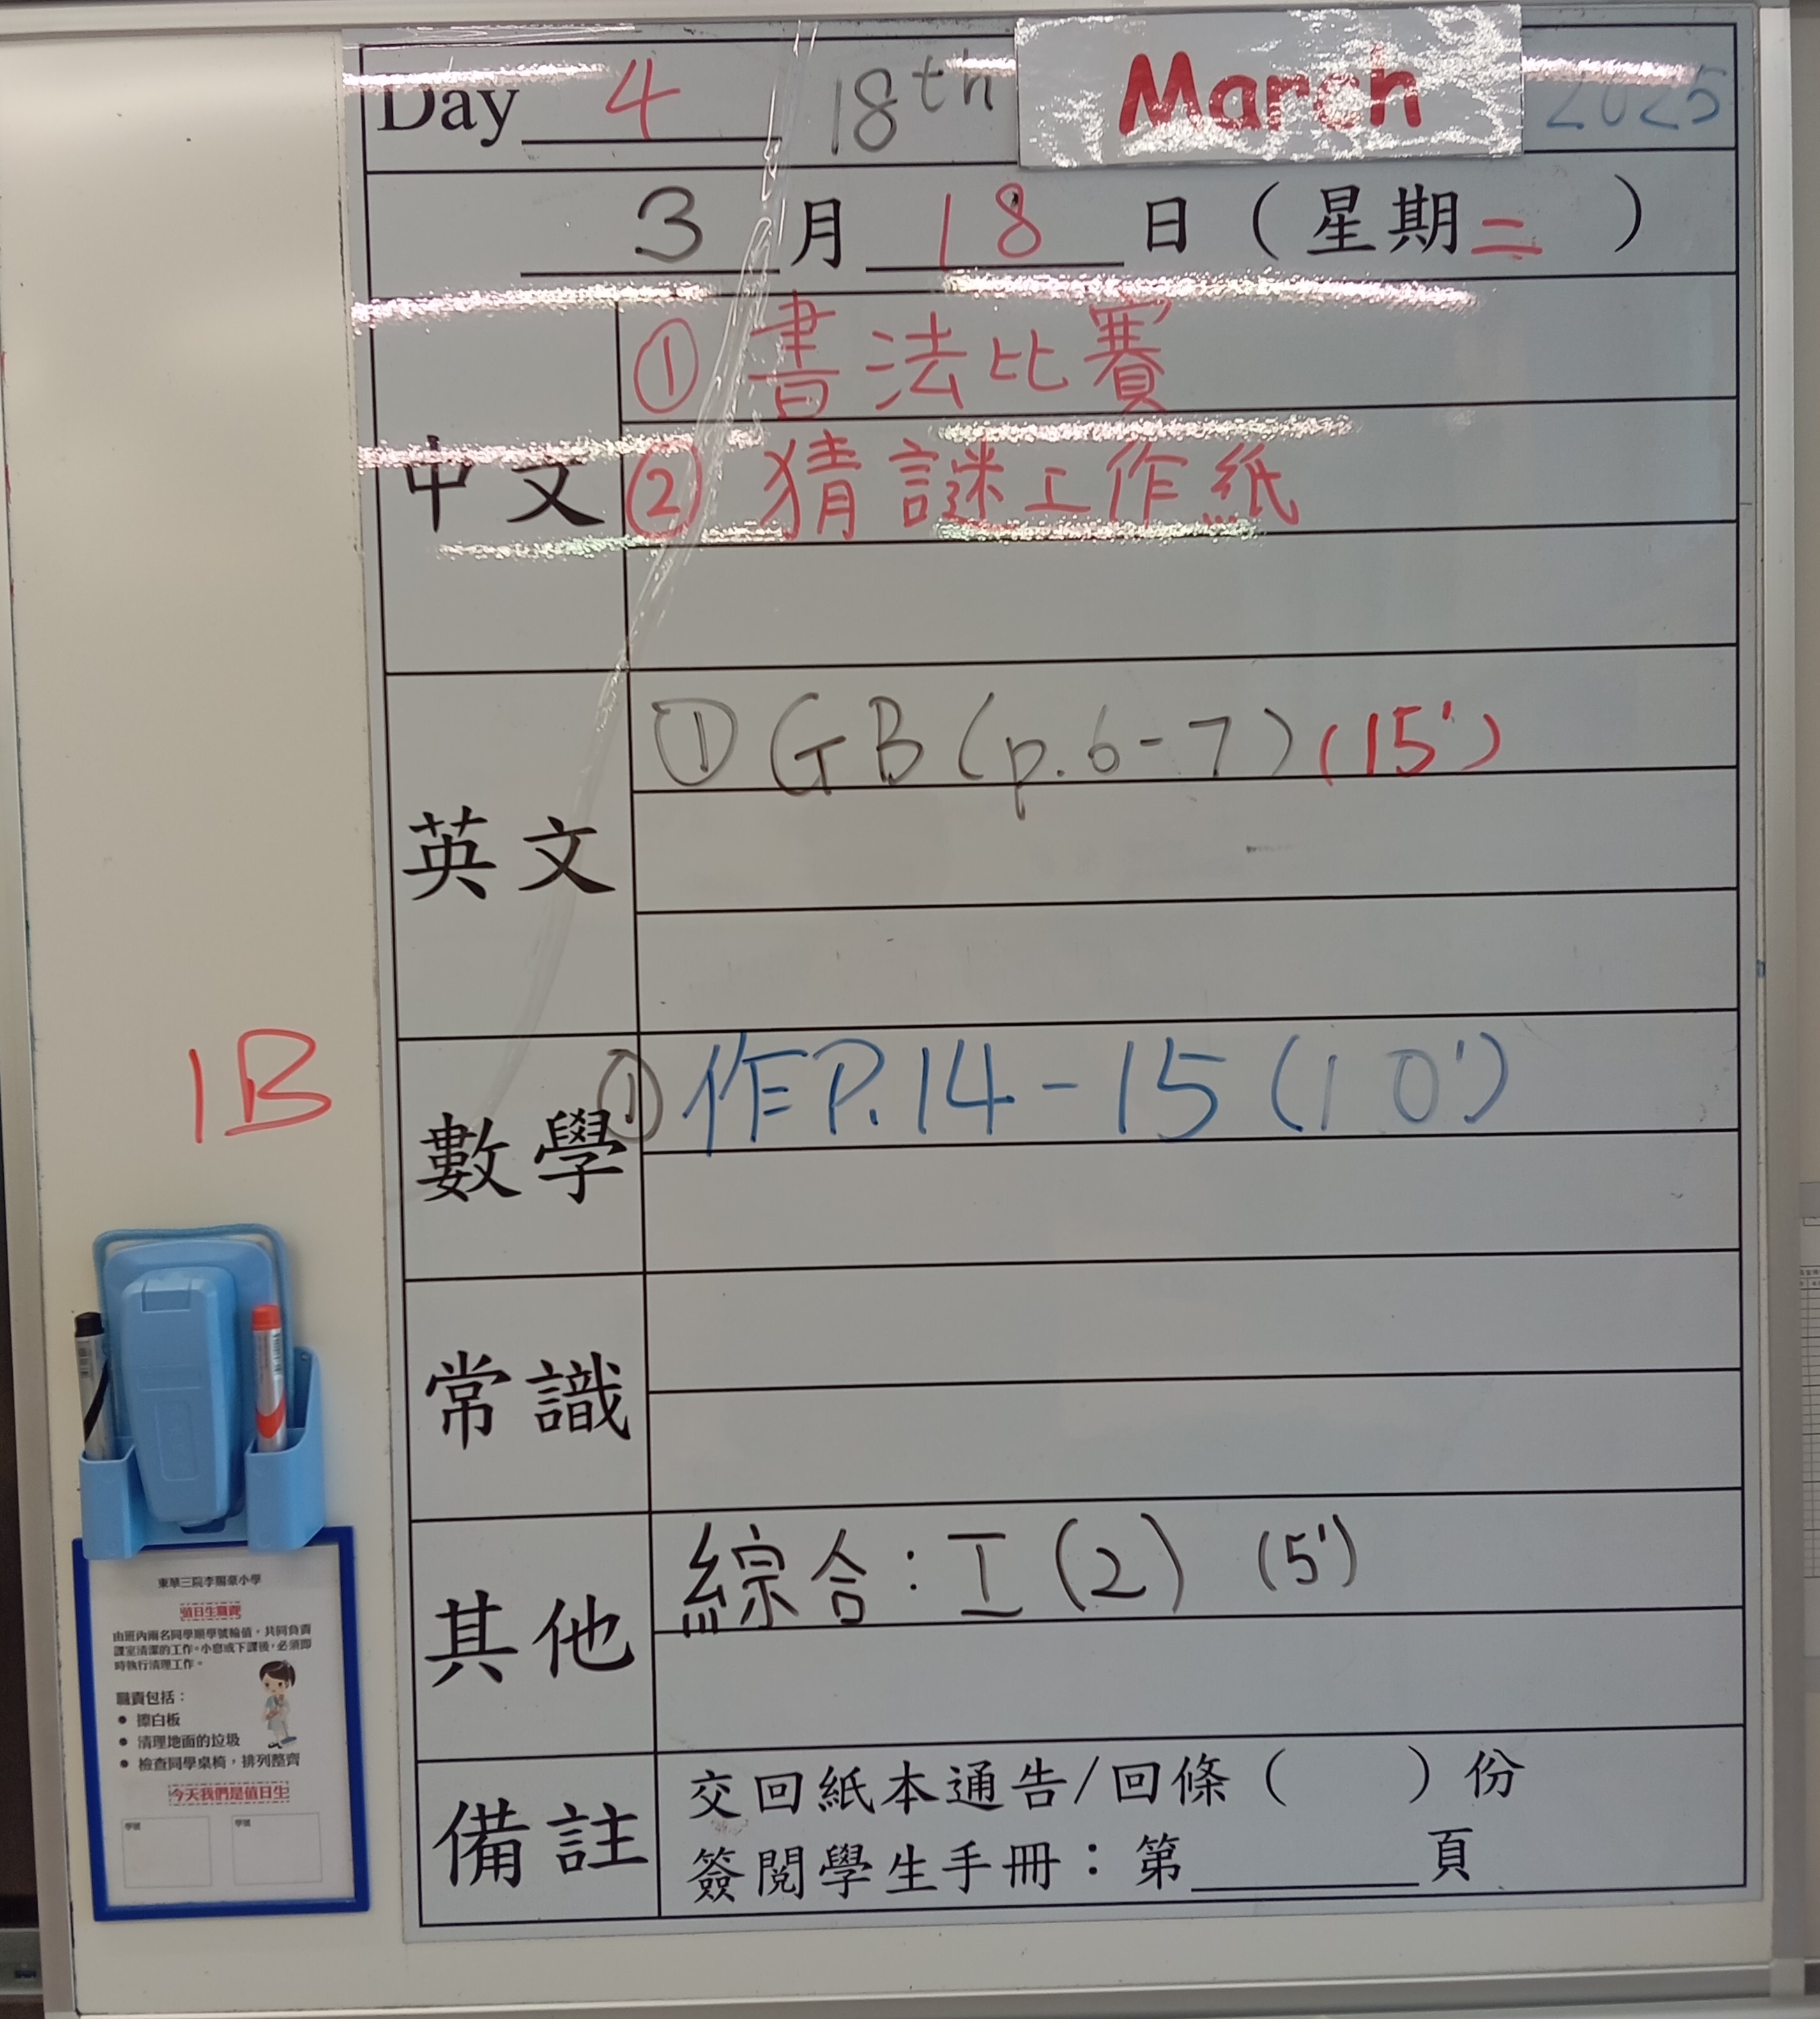 Day 4 18th March 2025
3 月 18 日 (星期二)
中文
① 書法比賽
② 猜謎工作紙
英文
① GB (p.6-7) (15')
數學
① 作P.14-15 (10')
常識
其他
綜合: 工(2) (5')
備註
交回紙本通告/回條( )份
簽閱學生手冊:第______頁
1B
東華三院李賜豪小學
值日生職責
由班內兩名同學順學號輪值,共同負責
課室清潔的工作。小息或下課後,必須即
時執行清理工作。
職責包括:
● 擦白板
● 清理地面的垃圾
● 檢查同學桌椅,排列整齊
今天我們是值日生
學號 學號